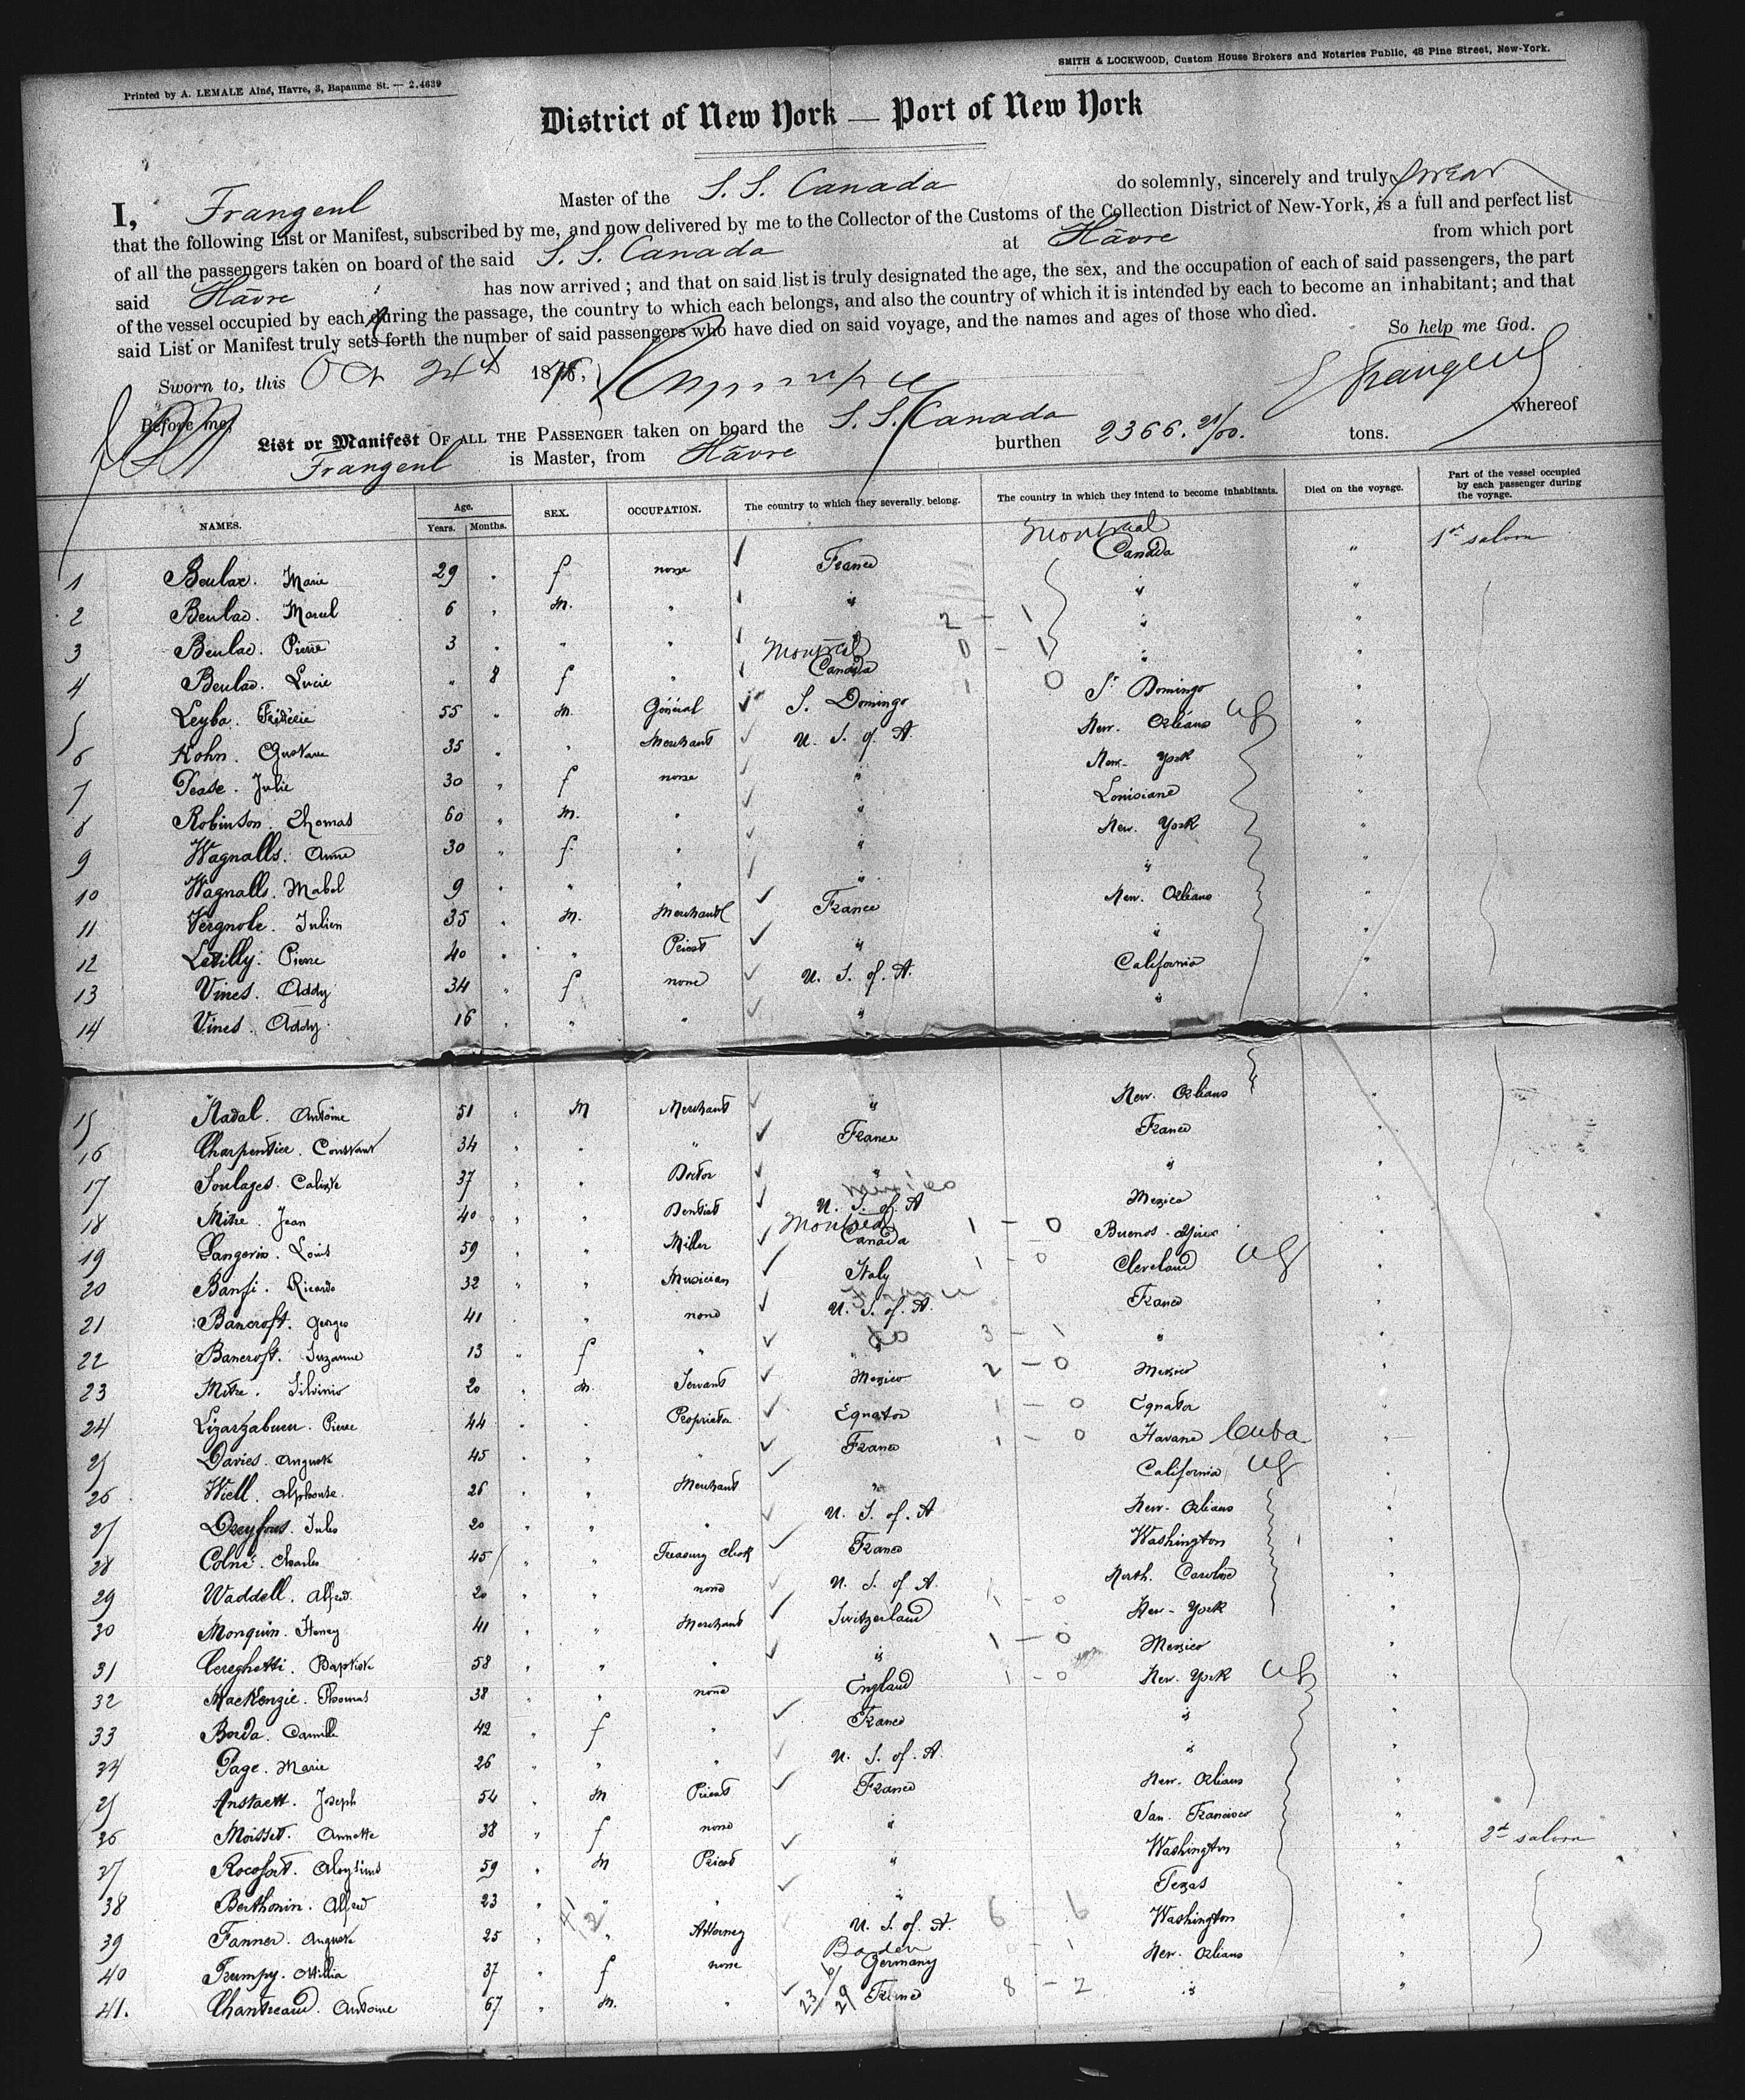 Printed by A. LEMALE Aîné, Havre, 3, Bapaume St. — 2.4639
SMITH & LOCKWOOD, Custom House Brokers and Notaries Public, 48 Pine Street, New-York.
District of New York — Port of New York
I, Frangeul Master of the S. S. Canada do solemnly, sincerely and truly swear
that the following List or Manifest, subscribed by me, and now delivered by me to the Collector of the Customs of the Collection District of New-York, is a full and perfect list
of all the passengers taken on board of the said S. S. Canada at Hâvre from which port
said Hâvre has now arrived; and that on said list is truly designated the age, the sex, and the occupation of each of said passengers, the part
of the vessel occupied by each during the passage, the country to which each belongs, and also the country of which it is intended by each to become an inhabitant; and that
said List or Manifest truly sets forth the number of said passengers who have died on said voyage, and the names and ages of those who died.
So help me God.
Sworn to, this Oct 24th 1876, Frangeul
Before me,
List or Manifest OF ALL THE PASSENGER taken on board the S. S. Canada whereof
Frangeul is Master, from Hâvre burthen 2366. 21/00. tons.
NAMES. Age. Years. Months. SEX. OCCUPATION. The country to which they severally belong. The country in which they intend to become inhabitants. Died on the voyage. Part of the vessel occupied by each passenger during the voyage.
1 Beulac. Marie 29 " f none France Montreal Canada " 1st saloon
2 Beulac. Marcel 6 " m. " " " "
3 Beulac. Pierre 3 " " " " 2 - 1 " "
4 Beulac. Lucie " 8 f " Montreal Canada 0 - 1 " "
5 Leyba. Frédéric 55 " m. Général S. Domingo 1 0 St Domingo "
6 Kohn. Gustave 35 " " Merchant U. S. of. A. New. Orléans US "
7 Pease. Julie 30 " f none " New- York "
8 Robinson. Thomas 60 " m. " " Louisiane "
9 Wagnalls. Anna 30 " f. " " New. York "
10 Wagnalls. Mabel 9 " " " " " "
11 Vergnole. Julien 35 " m. Merchant France New. Orléans "
12 Letilly. Pierre 40 " " Priest " " "
13 Vines. Addy 34 " f none U. S. of. A. California "
14 Vines. Addy. 16 " " " " " "
15 Nadal. Antoine 51 " m Merchant " New. Orléans "
16 Charpentier. Constant 34 " " " France France "
17 Soulages. Calixte 37 " " Doctor " " "
18 Mitre. Jean 40 " " Dentist Mexico U. S. of. A Mexico "
19 Langevin. Louis 59 " " Miller Montreal Canada 1 - 0 Buenos-Ayres "
20 Banfi. Ricardo 32 " " Musician Italy 1 - 0 Cleveland US "
21 Bancroft. Georges 41 " none France U. S. of. A. France "
22 Bancroft. Suzanne 13 " f " do 3 - 1 " "
23 Mitre. Silvinio 20 " m. Servant Mexico 2 - 0 Mexico "
24 Pierre 44 " " Proprietor Equator 1 - 0 Equator "
25 Davies. August 45 " " " France 1 - 0 Havane Cuba "
26 Wiell. Alphonse. 26 " " Merchant " California US "
27 Dreyfous. Jules 20 " " " U. S. of. A New- Orléans "
28 Colné. Charles 45 " " Treasury Clerk France Washington "
29 Waddell. Alfred. 20 " " none U. S. of A. North. Caroline "
30 Monquin. Henry 41 " " Merchant Switzerland 1 - 0 New- York "
31 Cereghetti. Baptiste 58 " " " " 1 - 0 Mexico "
32 MacKenzie. Thomas 38 " " none England 1 - 0 New. York US "
33 Borda. Camille 42 " f " France " "
34 Page. Marie 26 " " " U. S. of. A. " "
35 Anstaett. Joseph 54 " m Priest France New. Orléans "
36 Moisset. Annette 38 " f none " San. Francisco " 2d saloon
37 Rocofort. Aloysius 59 " m Priest " Washington
38 Berthonin. Alfred 23 " " " " Texas "
39 Fanner. Auguste 25 " " Attorney U. S. of. A. 6 - 6 Washington "
40 Trumpy. Ottilia 37 " f none Baden Germany 0 - 1 New. Orléans "
41. Chantreaud. Antoine 67 " m. " 23/29 France 8 - 2 " "